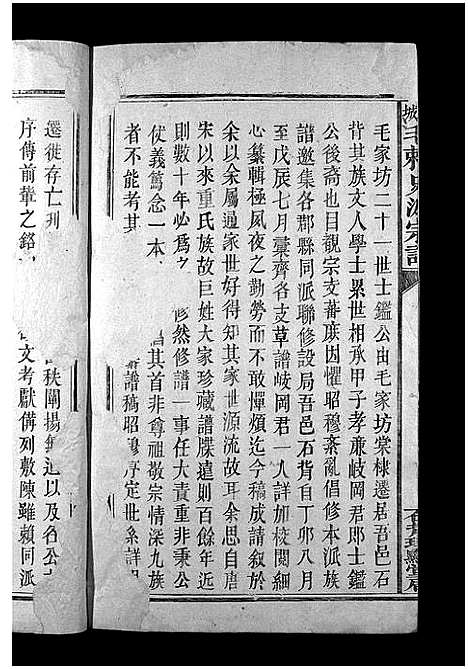 毛家坊二十一世士鑑公由毛家坊棠棣遷居吾邑石
背其族文人學士累世相承甲子孝亷岐岡君郎士鑑
公後裔也目觀宗支蕃庶因懼昭穆紊亂倡修本派族
譜邀集各郡縣同派聯修設局吾邑石背自丁卯八月
至戊辰七月稾齊各支草譜岐岡君一人詳加校閱細
心纂輯極夙夜之勤勞而不敢憚煩迄今稿成請敘於
余以余屬過家世好得知其家世源流故耳余思自唐
宋以來重氏族故巨姓大家珍藏譜牒遠則百餘年近
則數十年必爲 修然修譜一事任大責重非秉公
仗義篤念一本 倡其首非尊祖敬宗情深九族
者不能考其 譜稿昭穆序定世系詳
遷徙存亡 秩闡揚 以及各公
序傳前輩之銘 文考獻備列敷陳雖賴同派